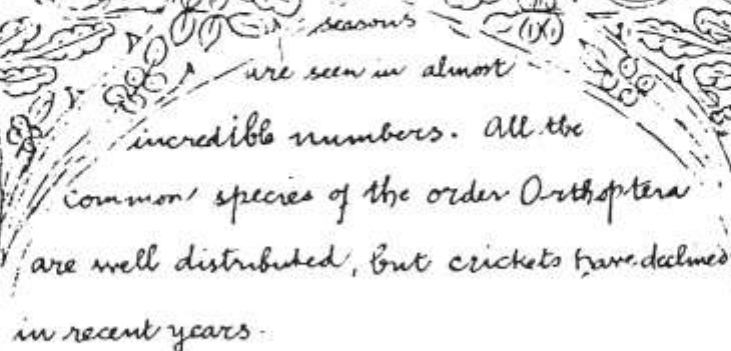 seasons
are seen in almost
incredible numbers. All the
common species of the order Orthoptera
are well distributed, but crickets have declined
in recent years.